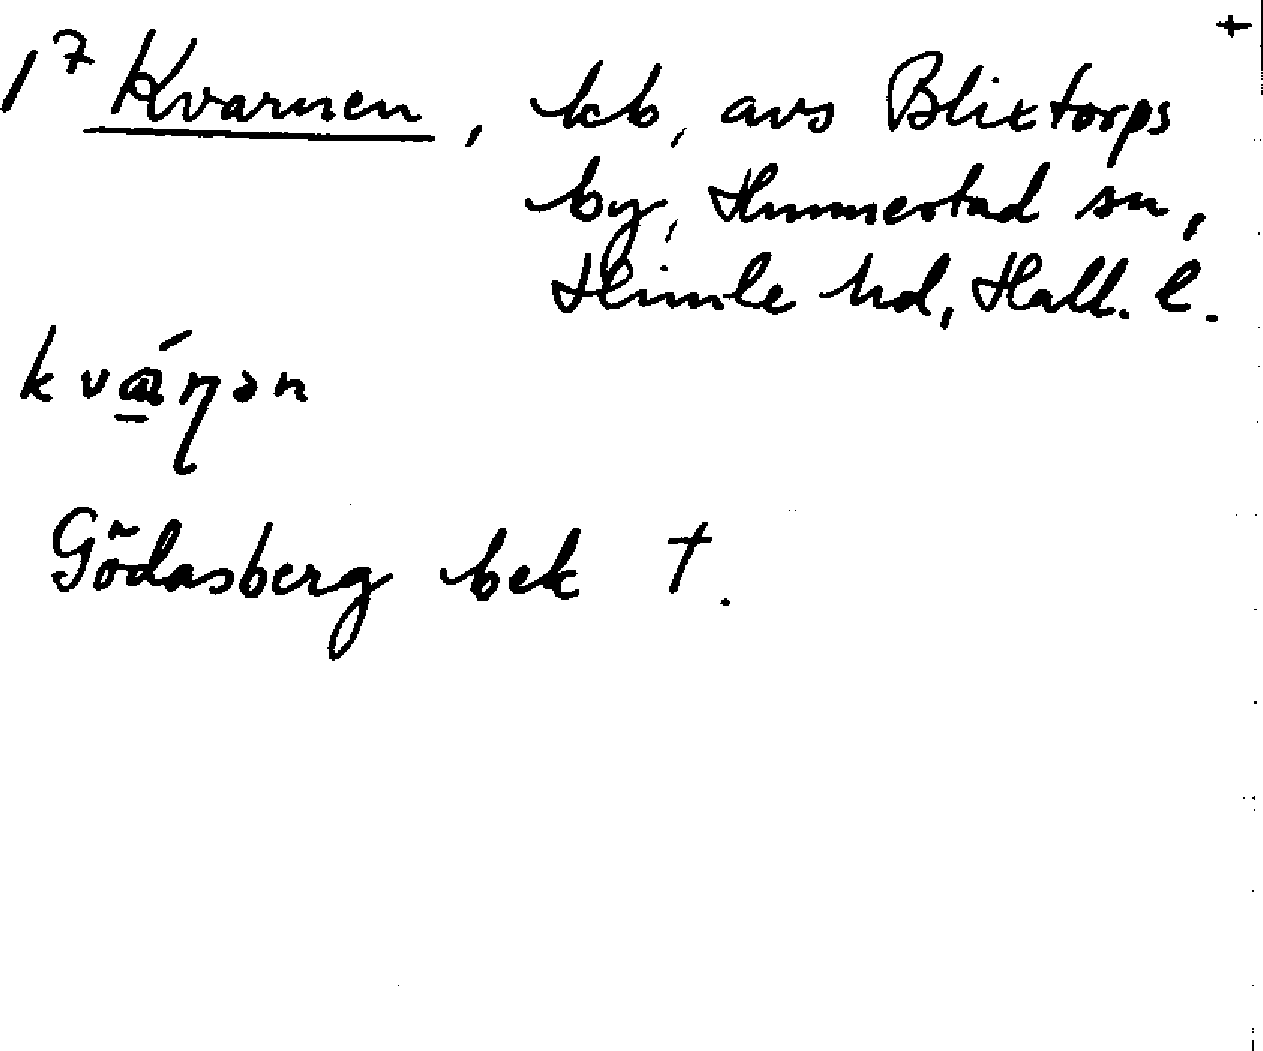 +
1⁷ Kvarnen, kb, avs Blixtorps
by, Hunnestad sn,
Himle hd, Hall. l.
kvá̱ɳən
Gödasberg bek †.